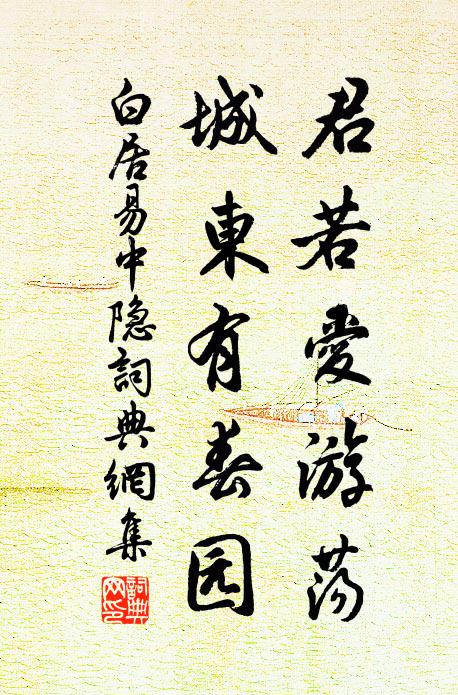 君若愛游荡
城東有春园
白居易中隐詞典網集
詞典网印